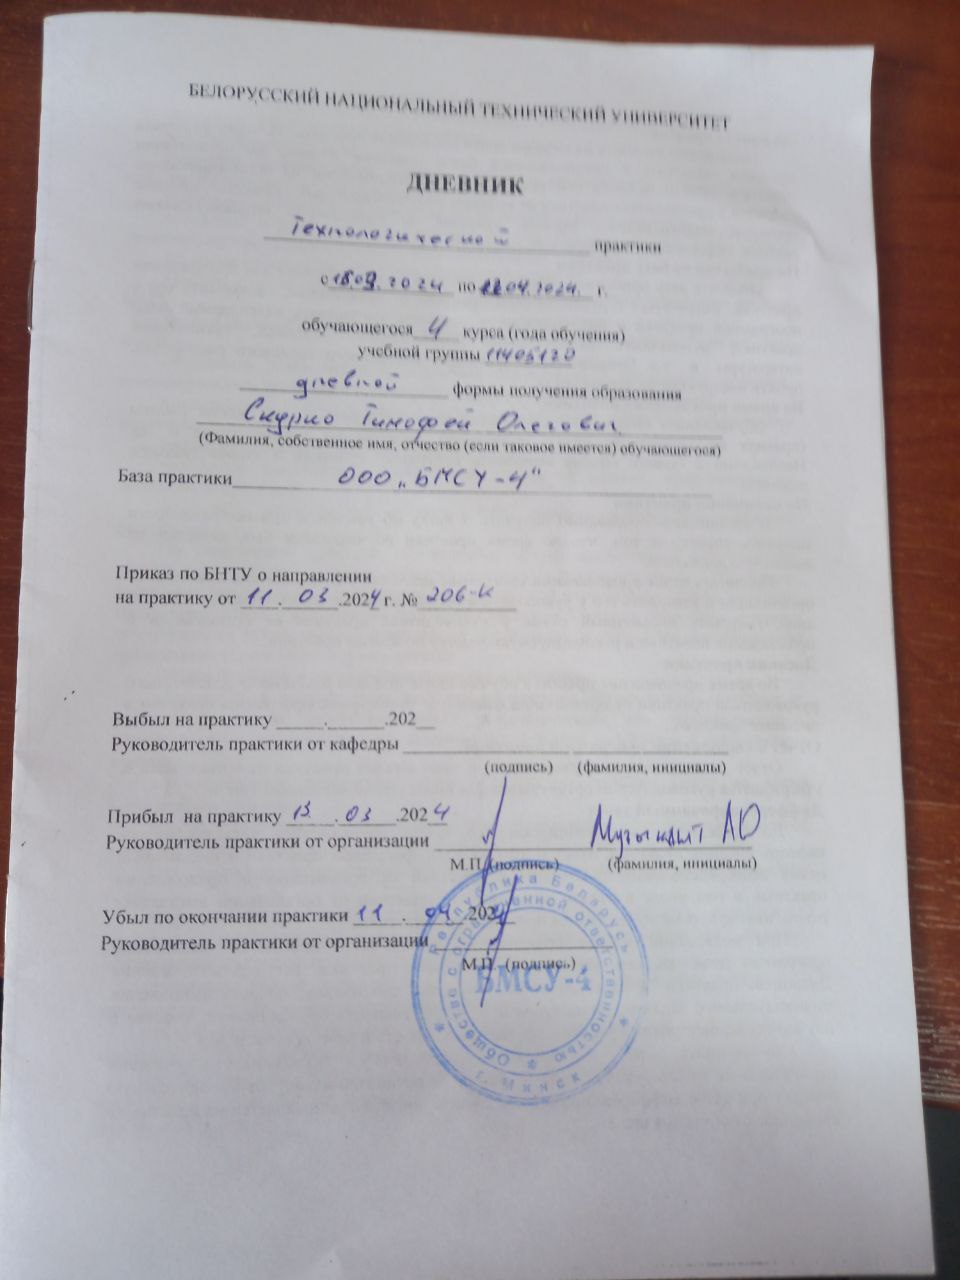 БЕЛОРУССКИЙ НАЦИОНАЛЬНЫЙ ТЕХНИЧЕСКИЙ УНИВЕРСИТЕТ
ДНЕВНИК
Технологической практики
с 18.03.2024 по 12.04.2024 г.
обучающегося 4 курса (года обучения)
учебной группы 11405120
дневной формы получения образования
Скурко Тимофей Олегович
(Фамилия, собственное имя, отчество (если таковое имеется) обучающегося)
База практики ООО „БМСУ-4"
Приказ по БНТУ о направлении
на практику от 11.03.2024 г. № 206-к
Выбыл на практику ____.____.202__
Руководитель практики от кафедры
(подпись) (фамилия, инициалы)
Прибыл на практику .03.2024
Руководитель практики от организации АО
М.П. (подпись) (фамилия, инициалы)
Убыл по окончании практики 11.04.2024
Руководитель практики от организации
М.П. (подпись)
Республика Беларусь
Общество с ограниченной ответственностью
БМСУ-4
г. Минск